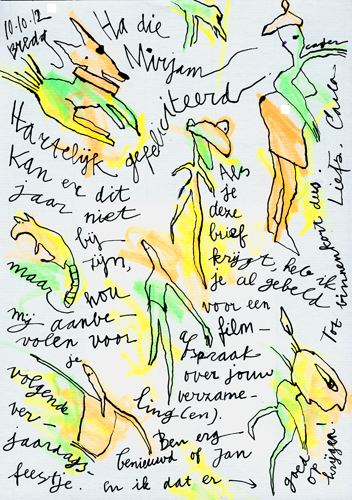 10.10.'12
Breda
Ha die
Mirjam
Hartelijk gefeliciteerd
Kan er dit
jaar niet
bij
zijn,
maar hou
mij aanbe-
volen voor
je
volgende
ver-
jaardags-
feestje.
Als
je
deze
brief
krijgt, heb ik
je al gebeld
voor een
film-
afspraak
over jouw
verzame-
ling(en).
Ben erg
benieuwd of Jan
en ik dat er
goed
op
krijgen!
Tot binnenkort dus
Liefs,